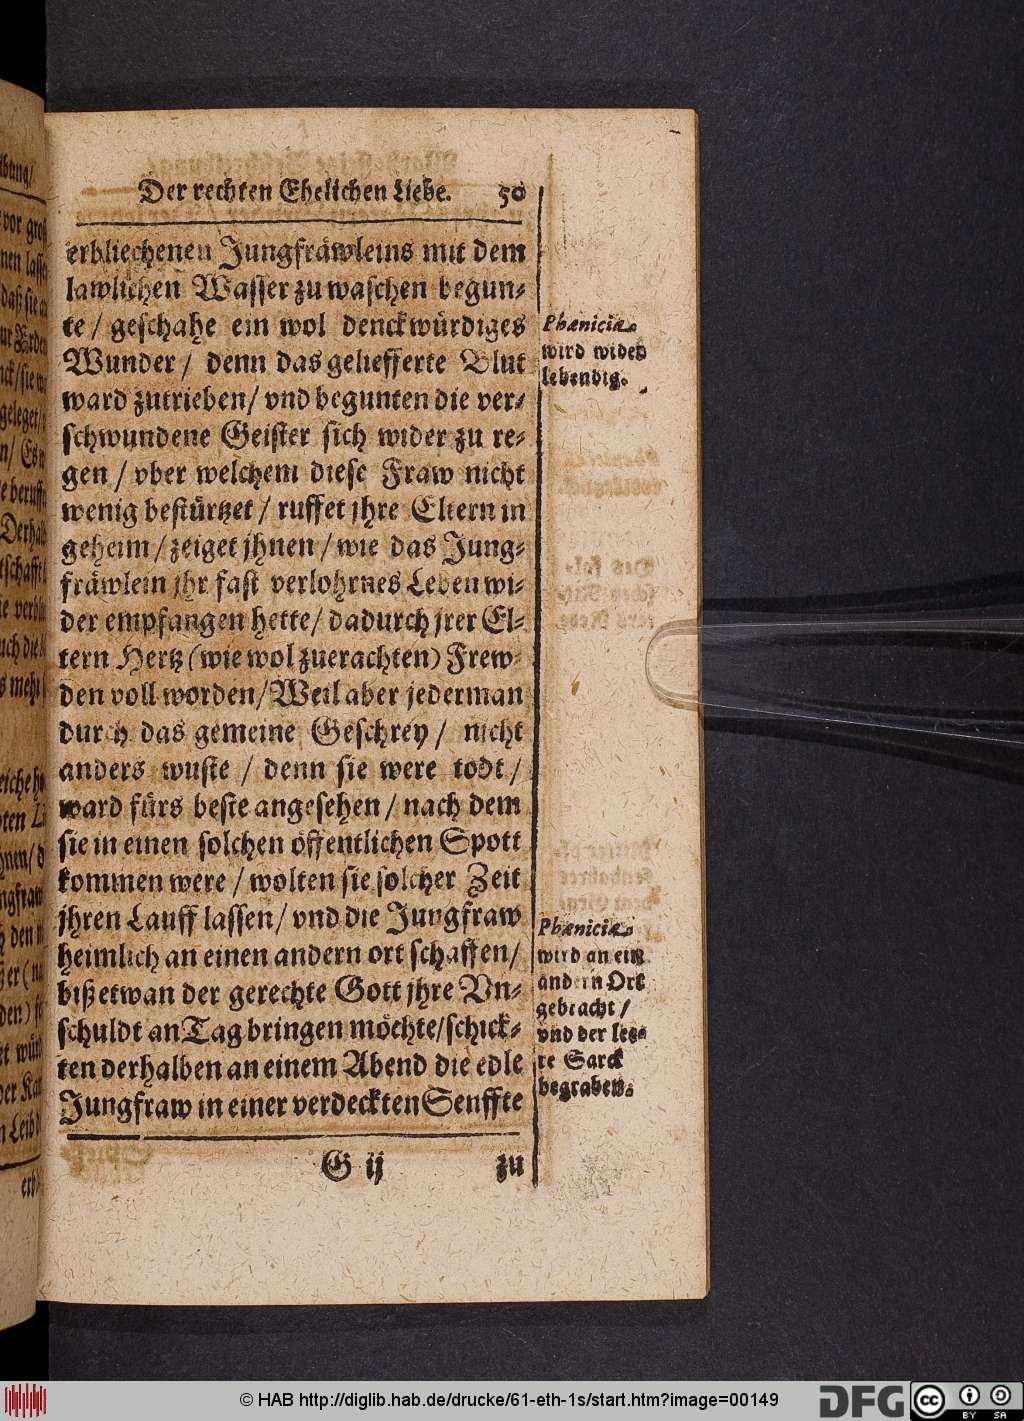 Der rechten Ehelichen Liebe. 50
erbliechenen Jungfräwleins mit dem
lawlichen Wasser zu waschen begun-
te / geschahe ein wol denckwürdiges
Wunder / denn das geliefferte Blut
ward zutrieben / vnd begunten die ver-
schwundene Geister sich wider zu re-
gen / vber welchem diese Fraw nicht
wenig bestürtzet / ruffet jhre Eltern in
geheim / zeiget jhnen / wie das Jung-
fräwlein jhr fast verlohrnes Leben wi-
der empfangen hette / dadurch jrer El-
tern Hertz (wie wol zuerachten) Frew-
den voll worden / Weil aber jederman
durch das gemeine Geschrey / nicht
anders wuste / denn sie were todt /
ward fürs beste angesehen / nach dem
sie in einen solchen öffentlichen Spott
kommen were / wolten sie solcher Zeit
jhren Lauff lassen / vnd die Jungfraw
heimlich an einen andern ort schaffen /
biß etwan der gerechte Gott jhre Vn-
schuldt an Tag bringen möchte / schick-
ten derhalben an einem Abend die edle
Jungfraw in einer verdeckten Senffte
G ij zu
Phæniciæ
wird wider
lebendig.
Phæniciæ
wird an ein
andern Ort
gebracht /
vnd der lee-
re Sarck
begraben.
© HAB http://diglib.hab.de/drucke/61-eth-1s/start.htm?image=00149
DFG
cc BY SA